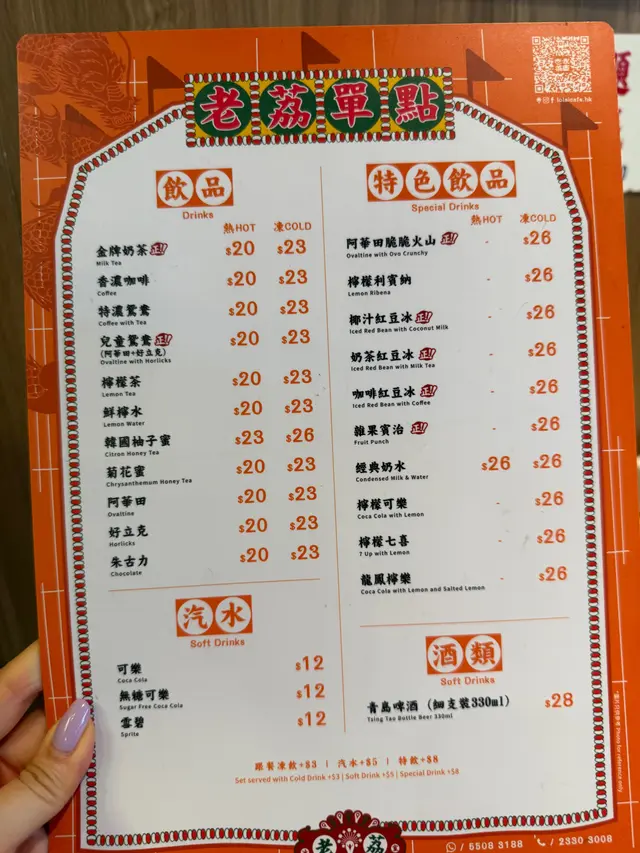 loisicafe.hk
老荔單點
飲品
Drinks
熱HOT 凍COLD
金牌奶茶 正! $20 $23
Milk Tea
香濃咖啡 $20 $23
Coffee
特濃鴛鴦 $20 $23
Coffee with Tea
兒童鴛鴦 正! $20 $23
(阿華田+好立克)
Ovaltine with Horlicks
檸檬茶 $20 $23
Lemon Tea
鮮檸水 $20 $23
Lemon Water
韓國柚子蜜 $23 $26
Citron Honey Tea
菊花蜜 $20 $23
Chrysanthemum Honey Tea
阿華田 $20 $23
Ovaltine
好立克 $20 $23
Horlicks
朱古力 $20 $23
Chocolate
汽水
Soft Drinks
可樂 $12
Coca Cola
無糖可樂 $12
Sugar Free Coca Cola
雲碧 $12
Sprite
特色飲品
Special Drinks
熱HOT 凍COLD
阿華田脆脆火山 正! - $26
Ovaltine with Ovo Crunchy
檸檬利賓納 - $26
Lemon Ribena
椰汁紅豆冰 正! - $26
Iced Red Bean with Coconut Milk
奶茶紅豆冰 正! - $26
Iced Red Bean with Milk Tea
咖啡紅豆冰 正! - $26
Iced Red Bean with Coffee
雜果賓治 正! - $26
Fruit Punch
經典奶水 $26 $26
Condensed Milk & Water
檸檬可樂 - $26
Coca Cola with Lemon
檸檬七喜 - $26
7 Up with Lemon
龍鳳檸樂 - $26
Coca Cola with Lemon and Salted Lemon
酒類
Soft Drinks
青島啤酒 (細支裝330ml) $28
Tsing Tao Bottle Beer 330ml
跟餐凍飲+$3 | 汽水+$5 | 特飲+$8
Set served with Cold Drink +$3 | Soft Drink +$5 | Special Drink +$8
老荔
/ 5508 3188 / 2330 3008
Photos for reference only